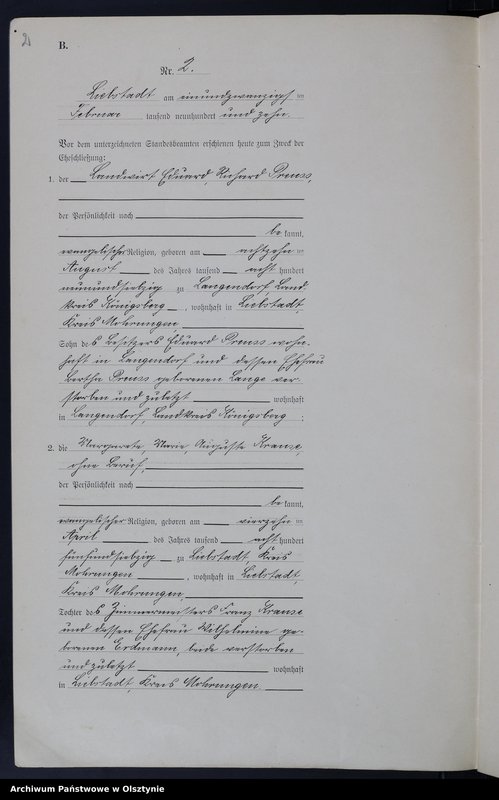 2
B.
Nr. 2.
Liebstadt am einundzwanzigsten
Februar tausend neunhundert und zehn.
Vor dem unterzeichneten Standesbeamten erschienen heute zum Zweck der
Eheschließung:
1. der Landwirt Eduard, Richard Preuss,
der Persönlichkeit nach
bekannt,
evangelischer Religion, geboren am achtzehnten
August des Jahres tausend acht hundert
neunundsiebzig zu Langendorf Land-
kreis Königsberg, wohnhaft in Liebstadt,
Kreis Mohrungen,
Sohn des Besitzers Eduard Preuss wohn-
haft in Langendorf und dessen Ehefrau
Bertha Preuss geborenen Lange ver-
storben und zuletzt wohnhaft
in Langendorf, Landkreis Königsberg.
2. die Margarete Marie, Auguste Krause,
ohne Beruf,
der Persönlichkeit nach
bekannt,
evangelischer Religion, geboren am vierzehnten
April des Jahres tausend acht hundert
fünfundsiebzig zu Liebstadt, Kreis
Mohrungen, wohnhaft in Liebstadt,
Kreis Mohrungen,
Tochter des Zimmermeisters Franz Krause
und dessen Ehefrau Wilhelmine ge-
borenen Erdmann, beide verstorben
und zuletzt wohnhaft
in Liebstadt, Kreis Mohrungen.
Archiwum Państwowe w Olsztynie